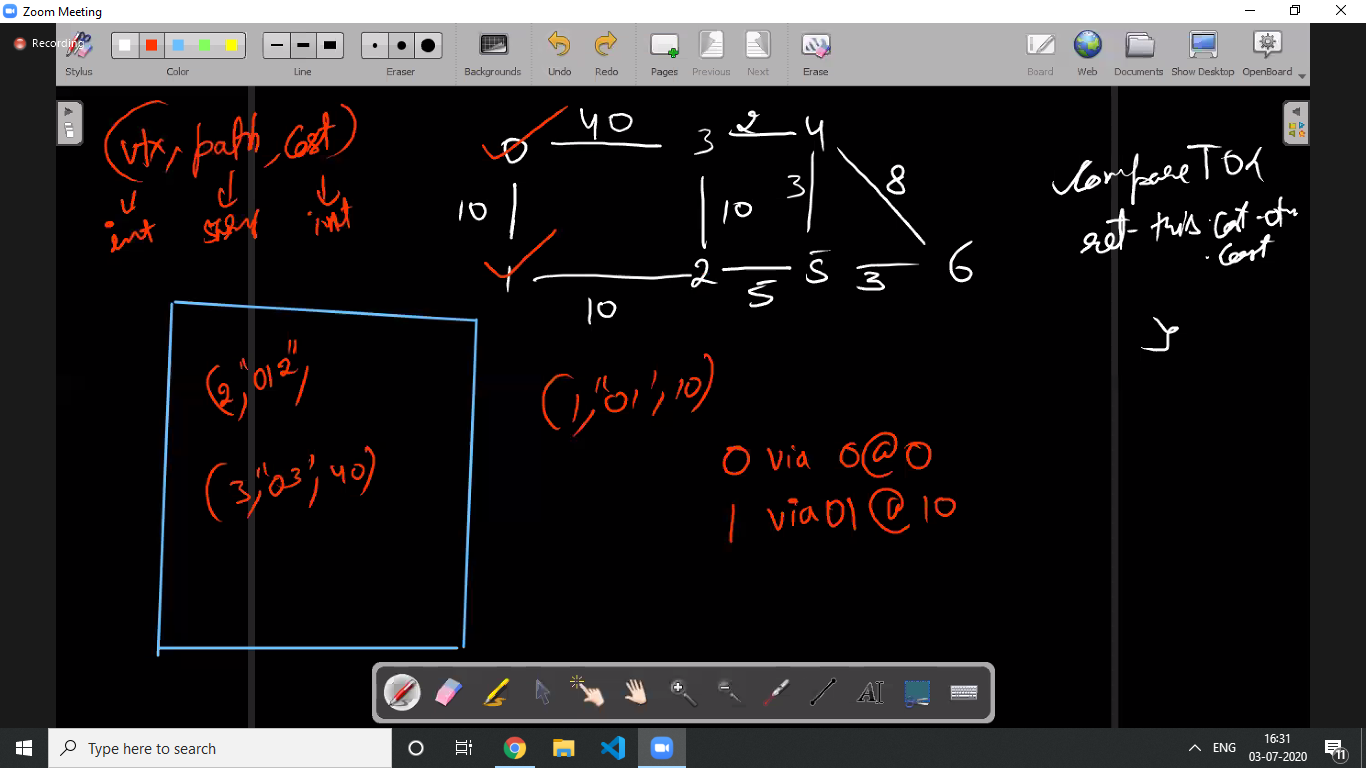 Zoom Meeting
Recording
Stylus
Color
Line
Eraser
Backgrounds
Undo
Redo
Pages
Previous
Next
Erase
Board
Web
Documents
Show Desktop
OpenBoard
(vtx, path, cost)
int
int
0 40 3 2 4
10 10 3 8
1 10 2 5 5 3 6
compareTo(
ret this.cost-
.cost
}
(2,"012",
(3,"03",40)
(1,"01",10)
0 via 0@0
1 via 01@10
Type here to search
ENG
16:31
03-07-2020
11